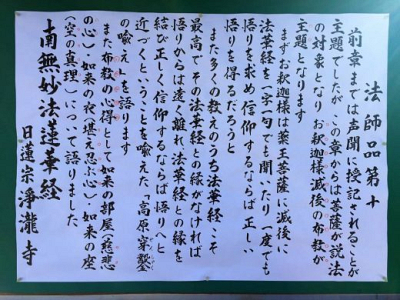 法師品第十
前章までは声聞に授記されることが
主題でしたが、この章からは菩薩が説法
の対象となり お釈迦様滅後の布教が
主題となります
まずお釈迦様は薬王菩薩に滅後に
法華経を一字一句でも聞いたり一度でも
悟りを求め信仰するならば 正しい
悟りを得るだろうと
また多くの教えのうち法華経こそ
最高でその法華経との縁がなければ
悟りからは遠く離れ 法華経との縁を
結び正しく信仰するならば 悟りへと
近づくということを喩えた、「高原穿鑿
の喩え」を語ります
また布教の心得として 如来の部屋(慈悲
の心)・如来の衣(堪え忍ぶ心)・如来の座
(空の真理)について語りました
南無妙法蓮華経
日蓮宗 浄瀧寺